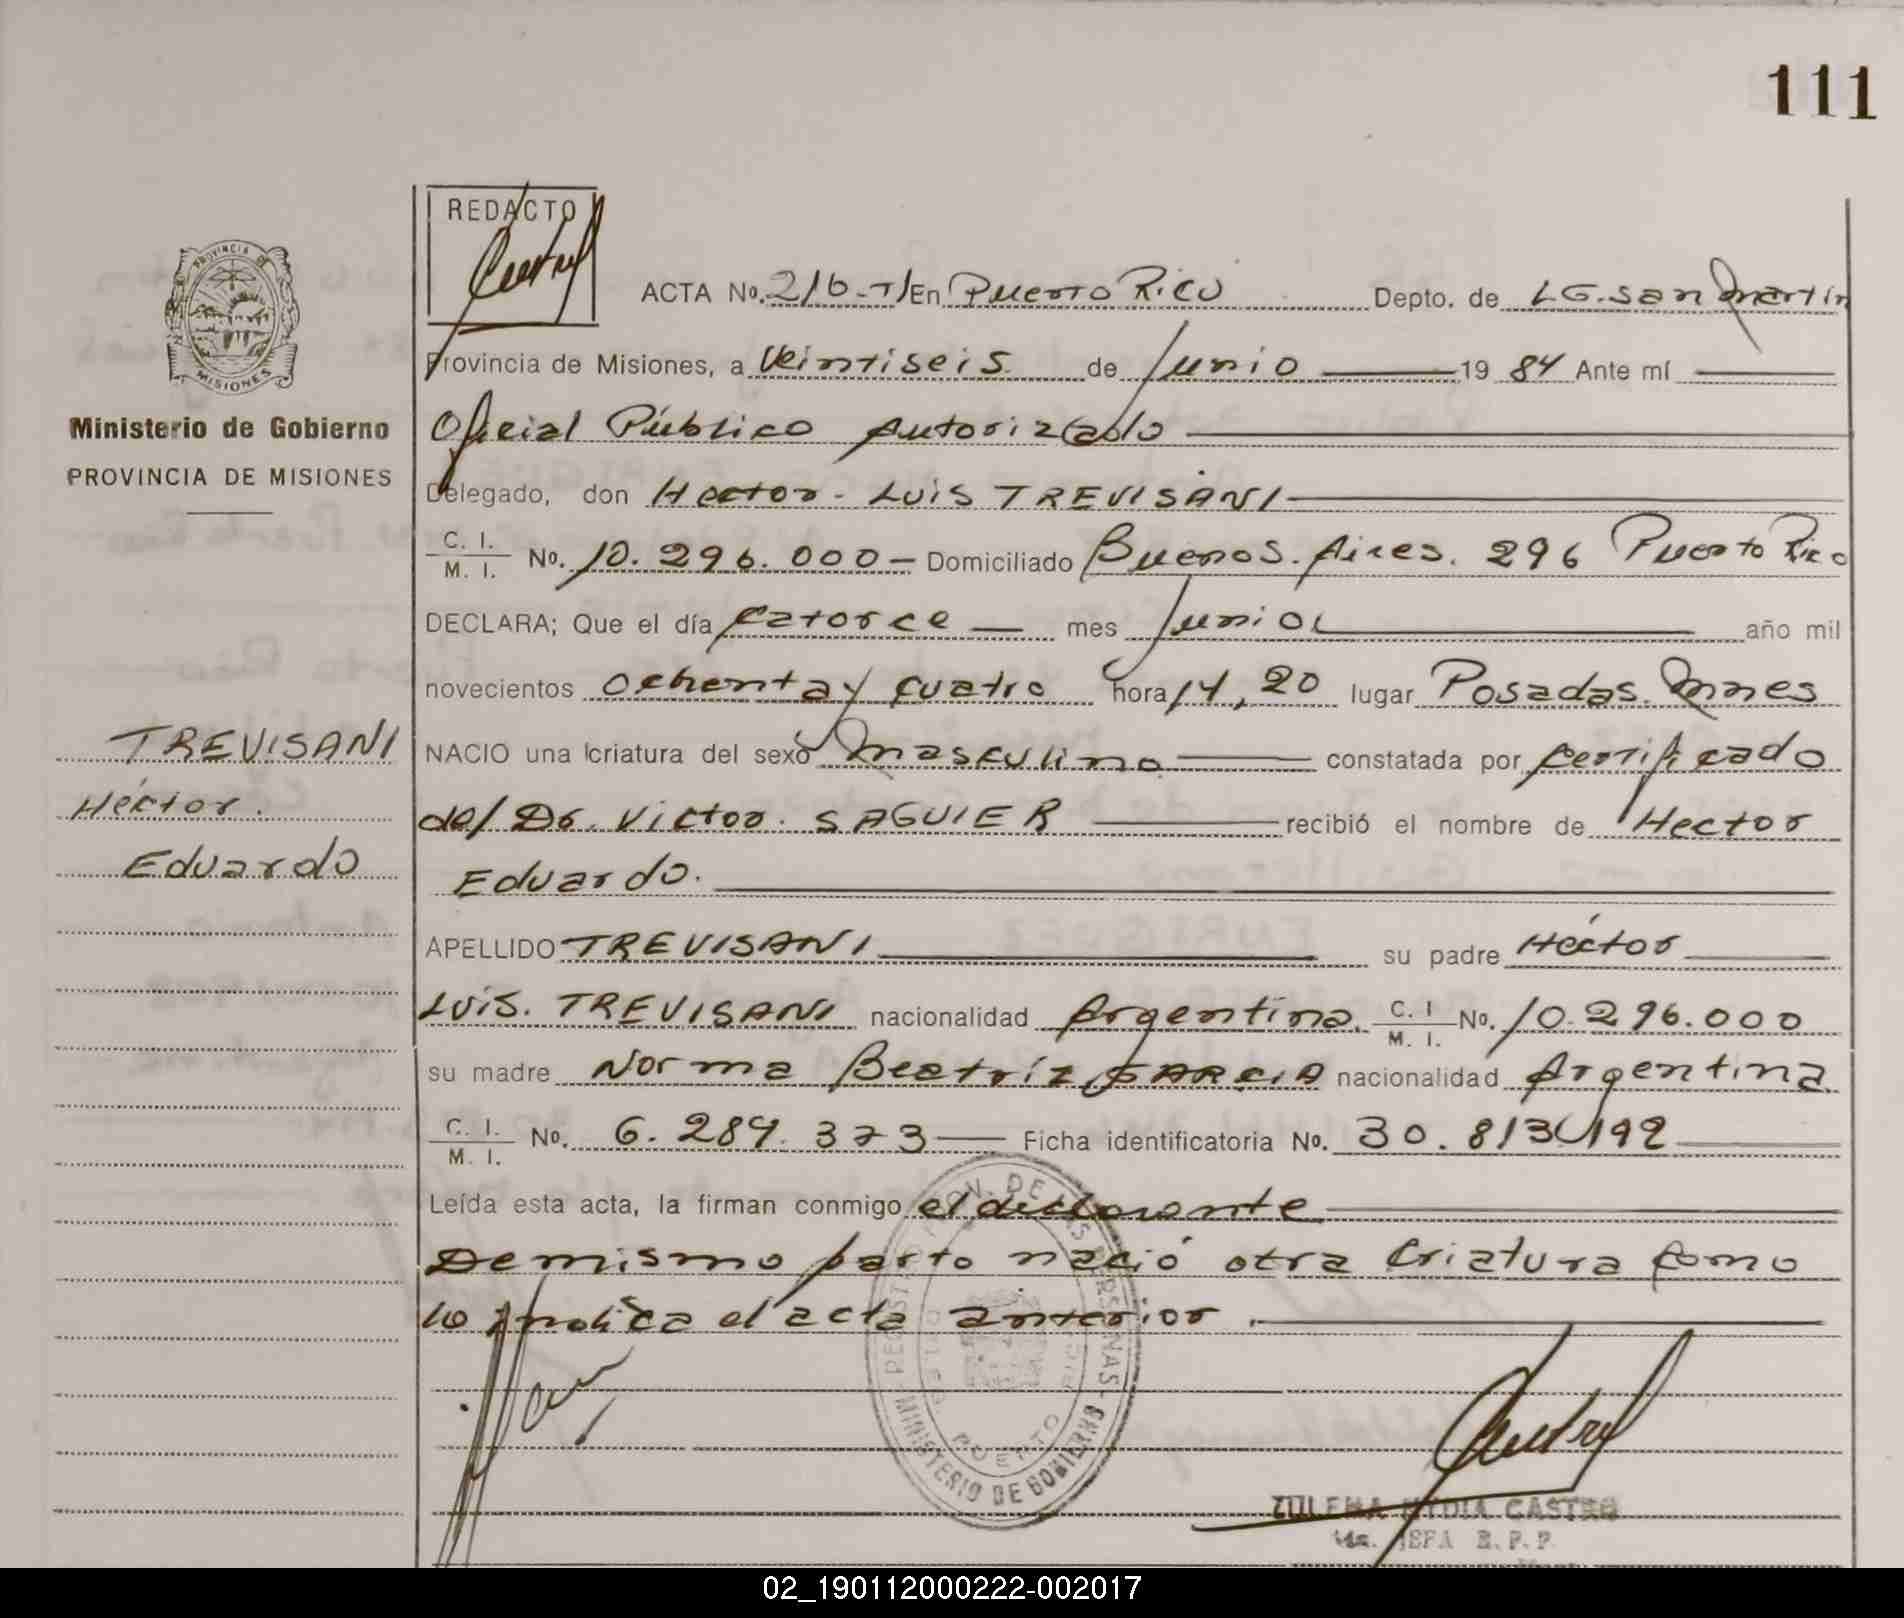 111
REDACTO
ACTA No. 216-T/ En Puerto Rico Depto. de L.G. San Martín
Provincia de Misiones, a Veintiseis de Junio 19 84 Ante mí
Oficial Público Autorizado
Delegado, don Hector - Luis TREVISANI
C. I.
M. I. No. 10.296.000 - Domiciliado Buenos Aires. 296 Puerto Rico
DECLARA; Que el día catorce mes Junio año mil
novecientos ochenta y cuatro hora 14,20 lugar Posadas. Mnes
NACIO una criatura del sexo masculino constatada por certificado
del Dr. Victor. SAGUIER recibió el nombre de Hector
Eduardo.
APELLIDO TREVISANI su padre Héctor
Luis. TREVISANI nacionalidad Argentina. C. I
M. I. No. 10.296.000
su madre Norma Beatríz GARCIA nacionalidad Argentina
C. I.
M. I. No. 6.284.373 Ficha identificatoria No. 30.813.192
Leída esta acta, la firman conmigo el declarante
De mismo parto nació otra criatura como
lo indica el acta anterior.
PROVINCIA DE
MISIONES
Ministerio de Gobierno
PROVINCIA DE MISIONES
TREVISANI
Héctor.
Eduardo
MINISTERIO DE GOBIERNO
PUERTO
ZULEMA NYDIA CASTRO
JEFA R.P.P.
02_190112000222-002017